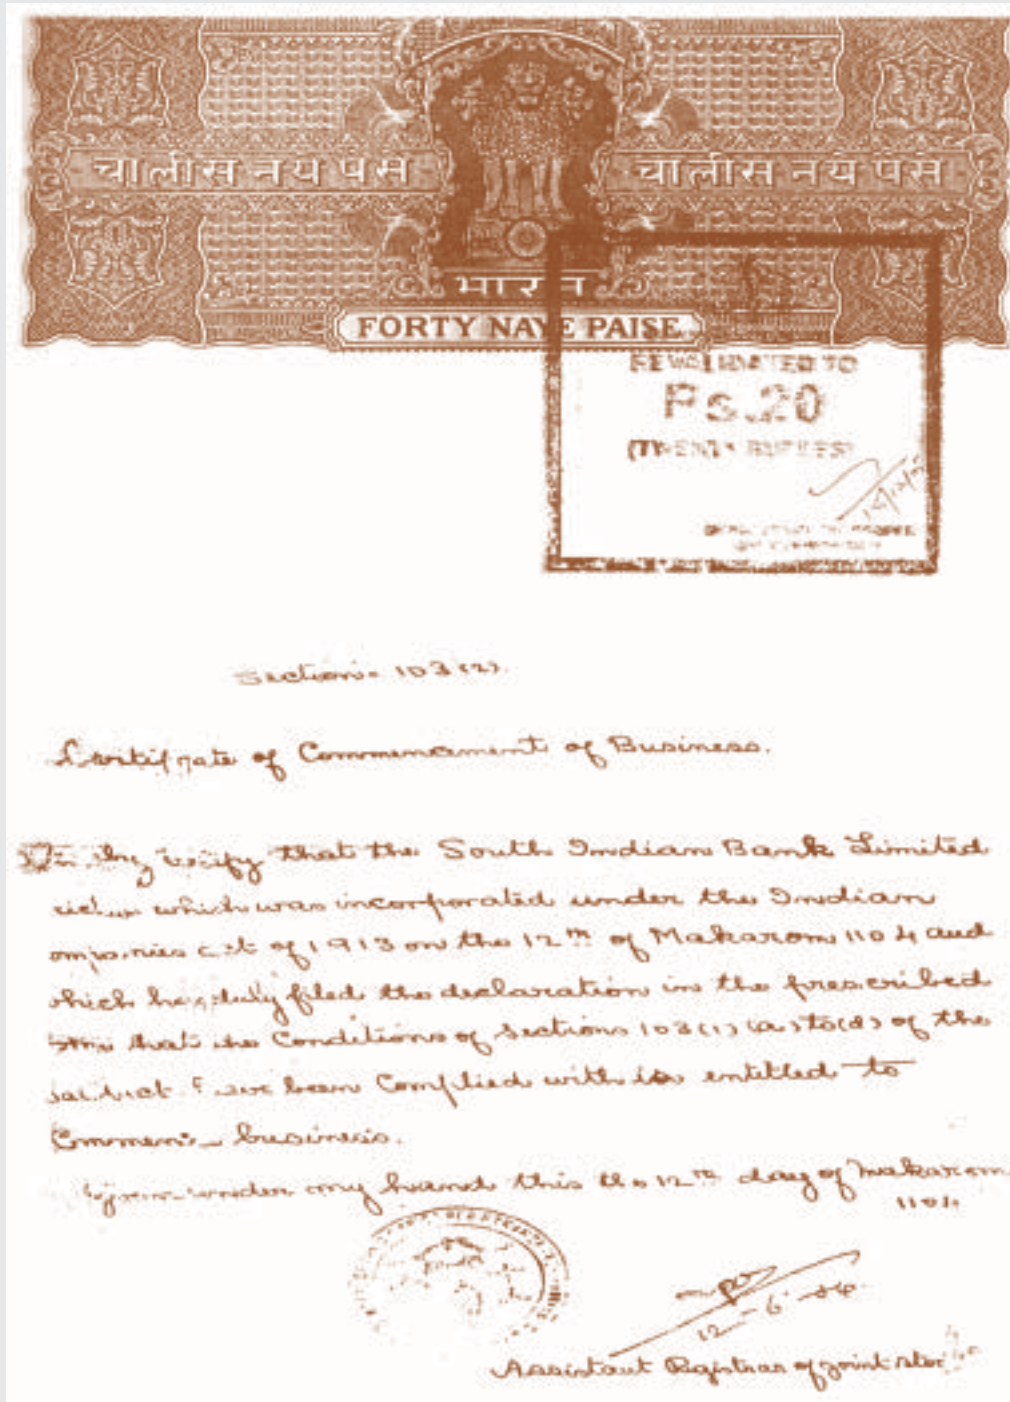 चालीस नये पैसे
चालीस नये पैसे
भारत
FORTY NAYE PAISE
REVALIDATED TO
Rs.20
(TWENTY RUPEES)
Section 103(2).
Certificate of Commencement of Business.
that the South Indian Bank Limited
which was incorporated under the Indian
of 1913 on the 12th of Makarom 1104 and
which has duly filed the declaration in the prescribed
that the Conditions of Sections 103(1)(a) to (d) of the
been Complied with is entitled to
business.
under my hand this the 12th day of Makarom
1104
12-6-
Assistant Registrar of Joint